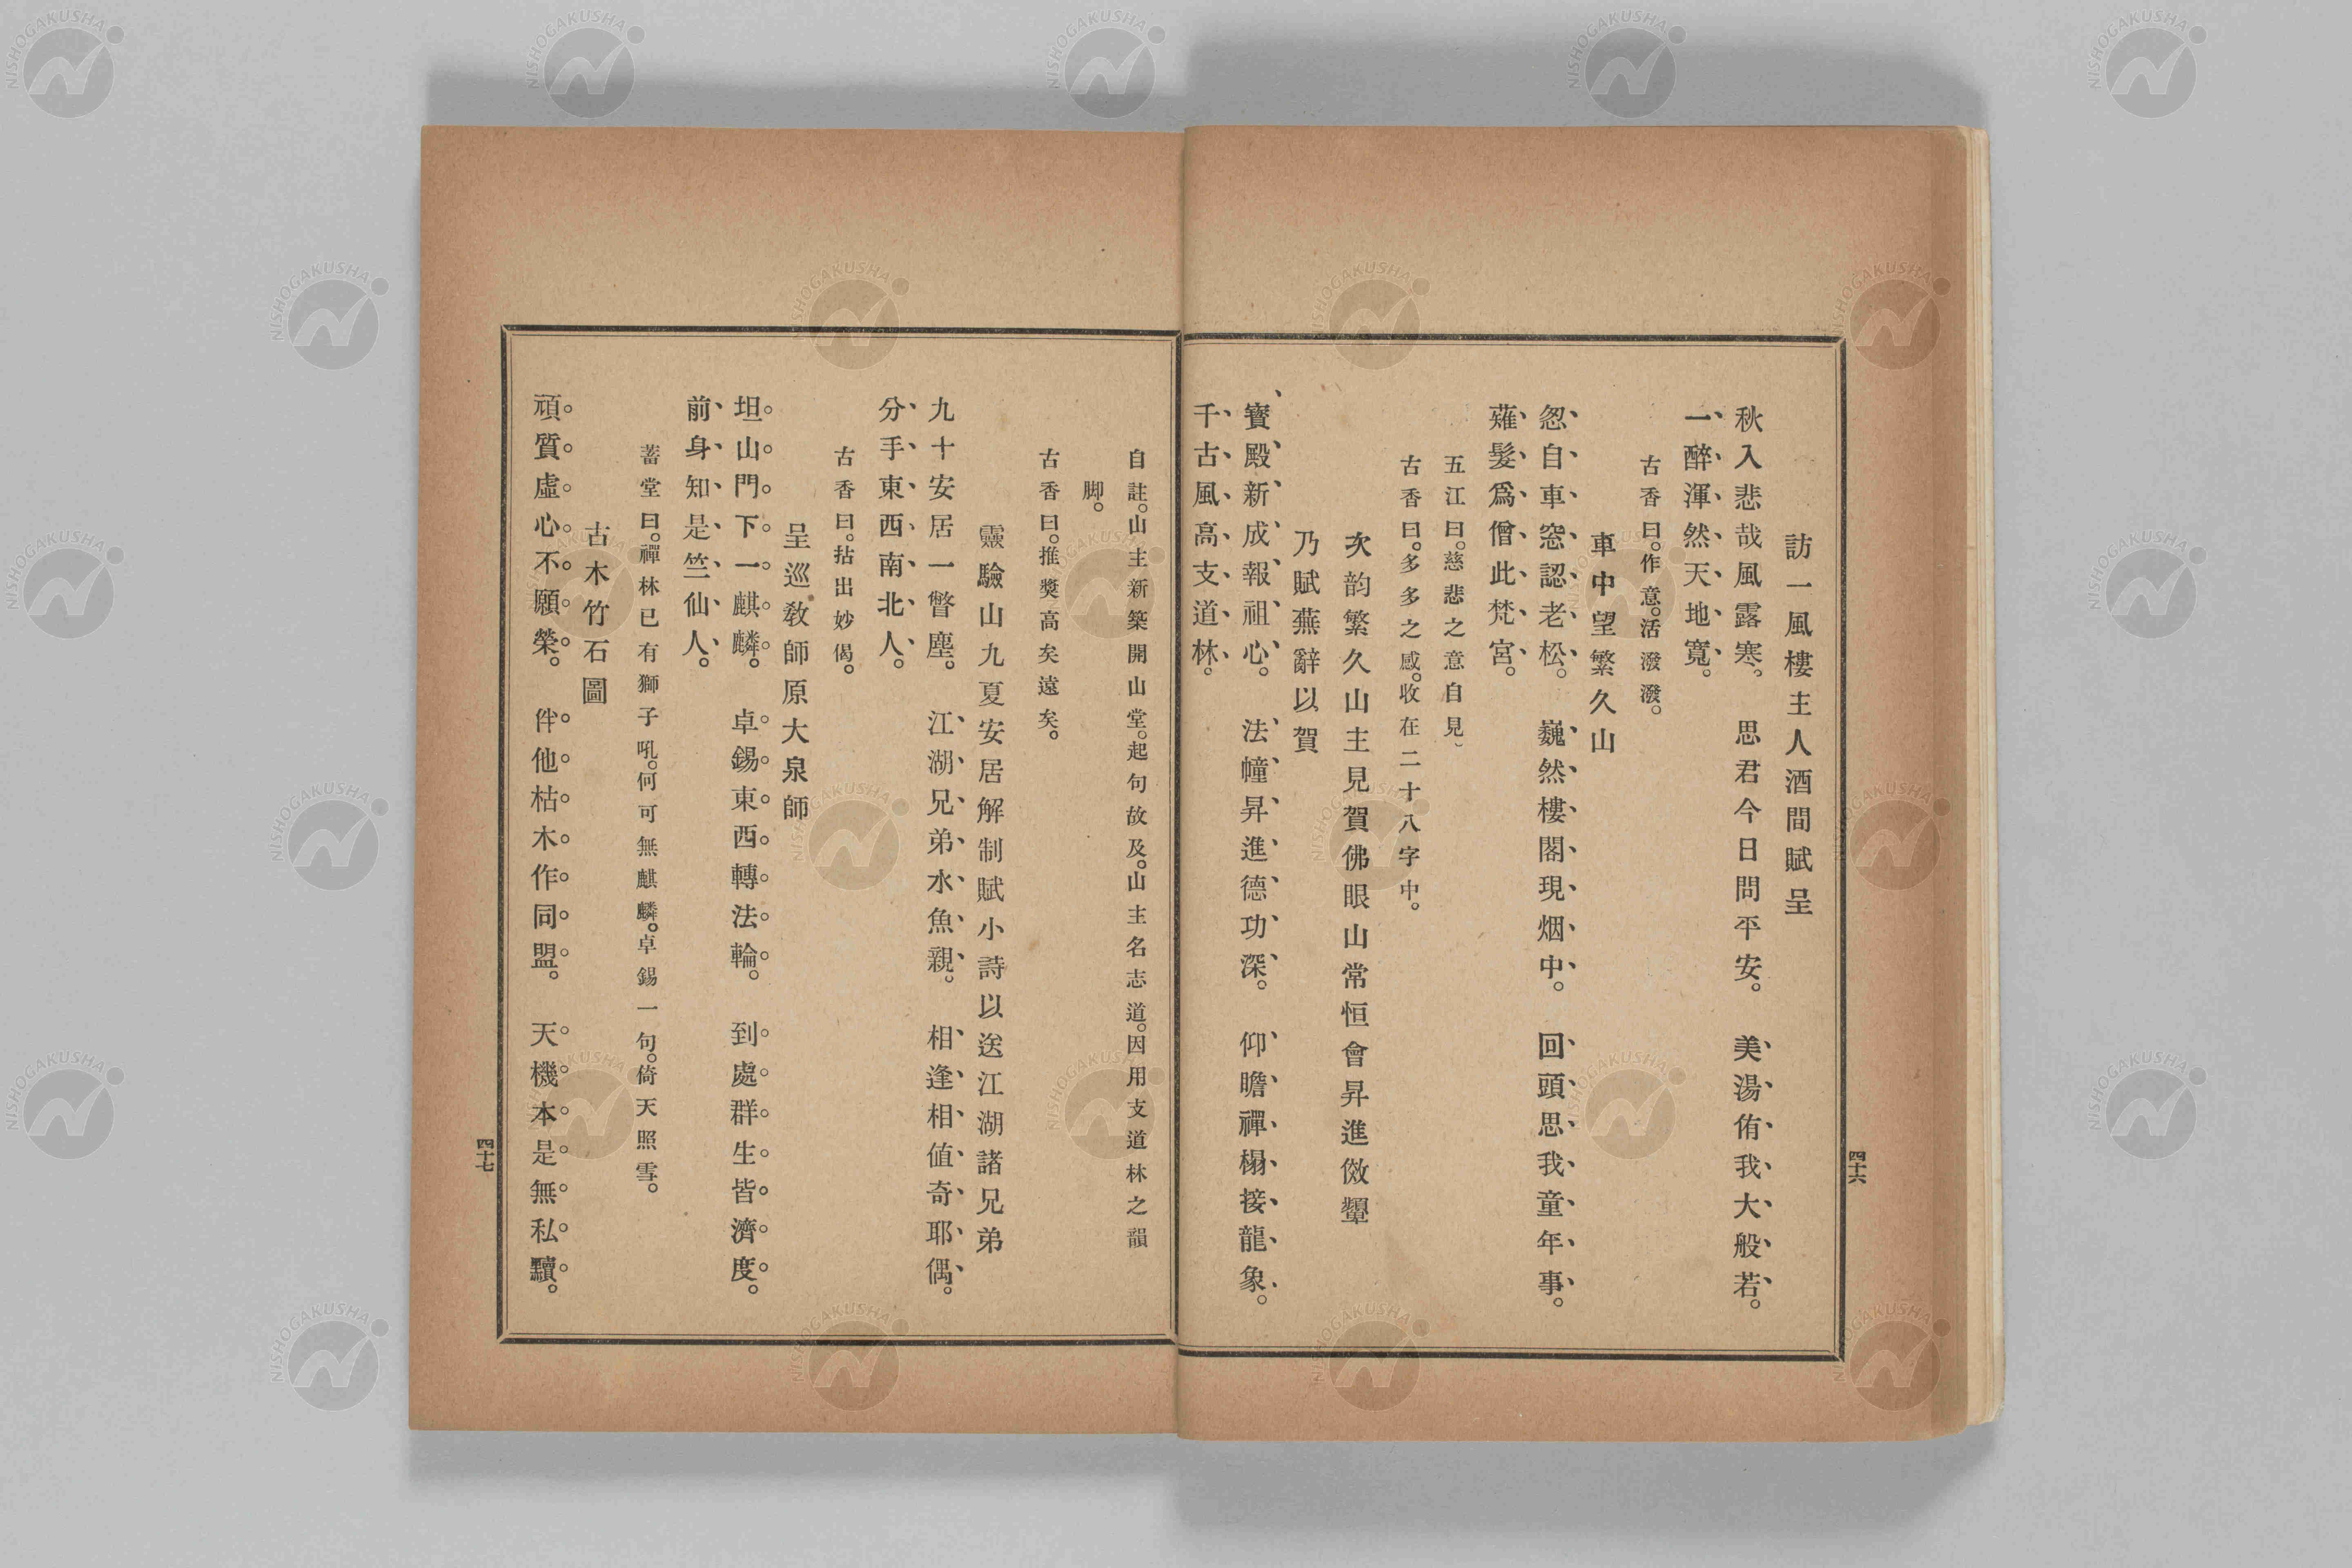 訪一風樓主人酒間賦呈
秋入悲哉風露寒。思君今日問平安。美湯侑我大般若。
一醉渾然天地寬。
古香曰。作意。活潑潑。
車中望繁久山
忽自車窓認老松。巍然樓閣現烟中。回頭思我童年事。
薙髮爲僧此梵宮。
五江曰。慈悲之意自見。
古香曰。多多之感。收在二十八字中。
次韵繁久山主見賀佛眼山常恒會昇進倣顰
乃賦蕪辭以賀
寳殿新成報祖心。法幢昇進德功深。仰瞻禪榻接龍象。
千古風高支道林。
四十六
自註。山主新築開山堂。起句故及。山主名志道。因用支道林之韻
脚。
古香曰。推奬高矣遠矣。
靈驗山九夏安居解制賦小詩以送江湖諸兄弟
九十安居一瞥塵。江湖兄弟水魚親。相逢相値奇耶偶。
分手東西南北人。
古香曰。拈出妙偈。
呈巡敎師原大泉師
坦山門下一麒麟。卓錫東西轉法輪。到處群生皆濟度。
前身知是竺仙人。
蓄堂曰。禪林已有獅子吼。何可無麒麟。卓錫一句。倚天照雪。
古木竹石圖
頑質虛心不願榮。伴他枯木作同盟。天機本是無私黷。
四十七
NISHOGAKUSHA